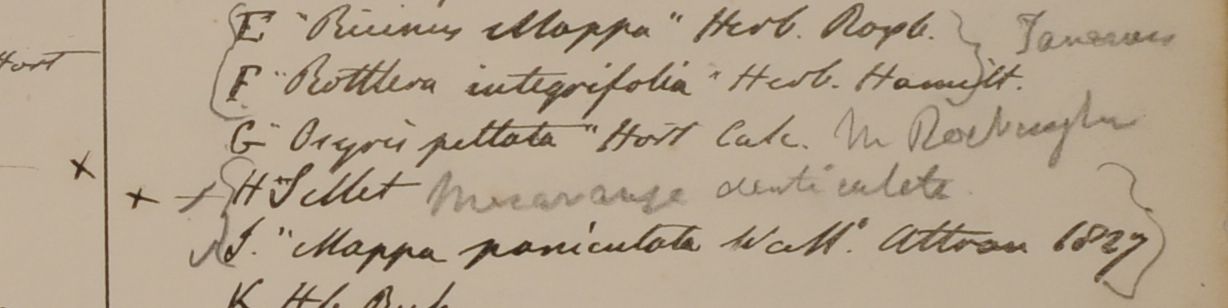 Hort
E "Ricinus Mappa" Herb. Roxb.
F "Rottlera integrifolia" Herb. Hamilt.
G "Osyris peltata" Hort Calc. M Roxburghii
H Sillet Macaranga denticulata
I. "Mappa paniculata Wall". Attran 1827
K Hb.